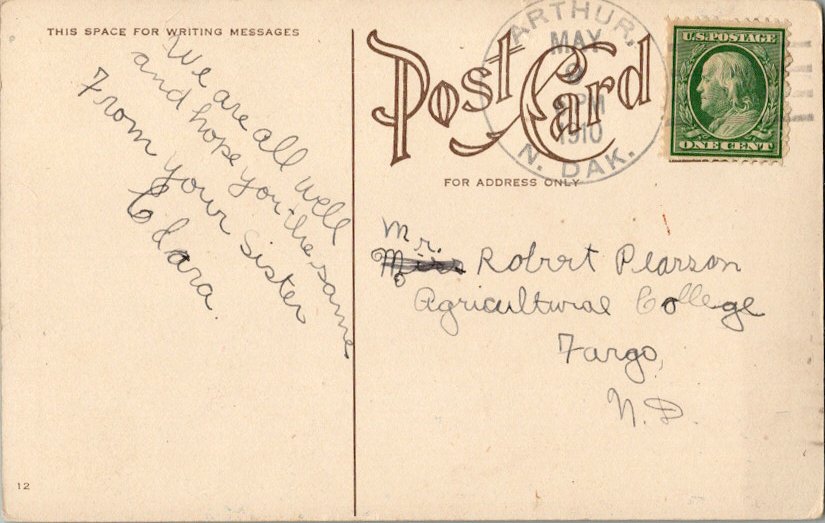 THIS SPACE FOR WRITING MESSAGES
We are all well
and hope you the same
From your Sister
Clara.
Post Card
FOR ADDRESS ONLY
ARTHUR,
MAY
PM
1910
N. DAK.
U.S. POSTAGE
ONE CENT
Mr.
Robert Pearson
Agricultural College
Fargo,
N.D.
12